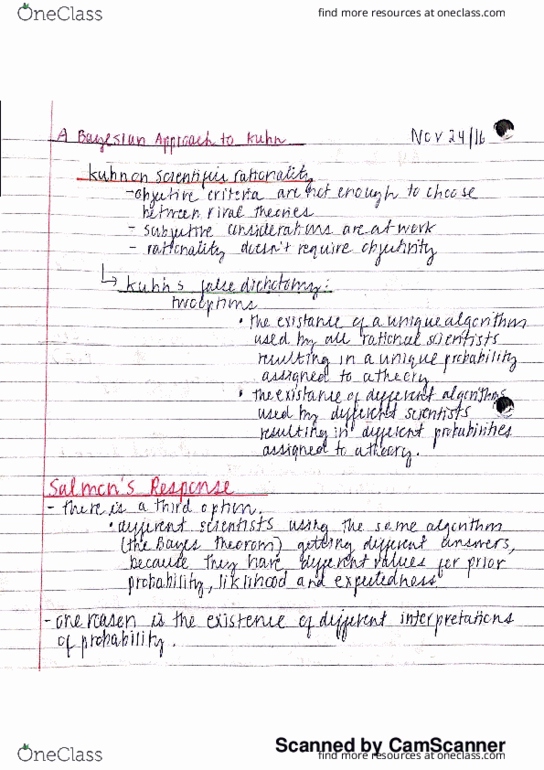 OneClass
find more resources at oneclass.com
A Bayesian Approach to Kuhn
Nov 24/16
Kuhn on scientific rationality
-objective criteria are not enough to choose
between rival theories
- subjective considerations are at work
- rationality doesn't require objectivity
↳ Kuhn's false dichotomy:
two options
• the existance of a unique algorithm
used by all rational scientists
resulting in a unique probability
assigned to a theory
• the existance of different algorithms
used by different scientists
resulting in different probabilities
assigned to a theory.
Salmon's Response
- there is a third option.
• different scientists using the same algorithm
(the Bayes theorom) getting different answers,
because they have different values for prior
probability, liklihood and expectedness
- one reason is the existence of different interpretations
of probability.
Scanned by CamScanner
OneClass
find more resources at oneclass.com